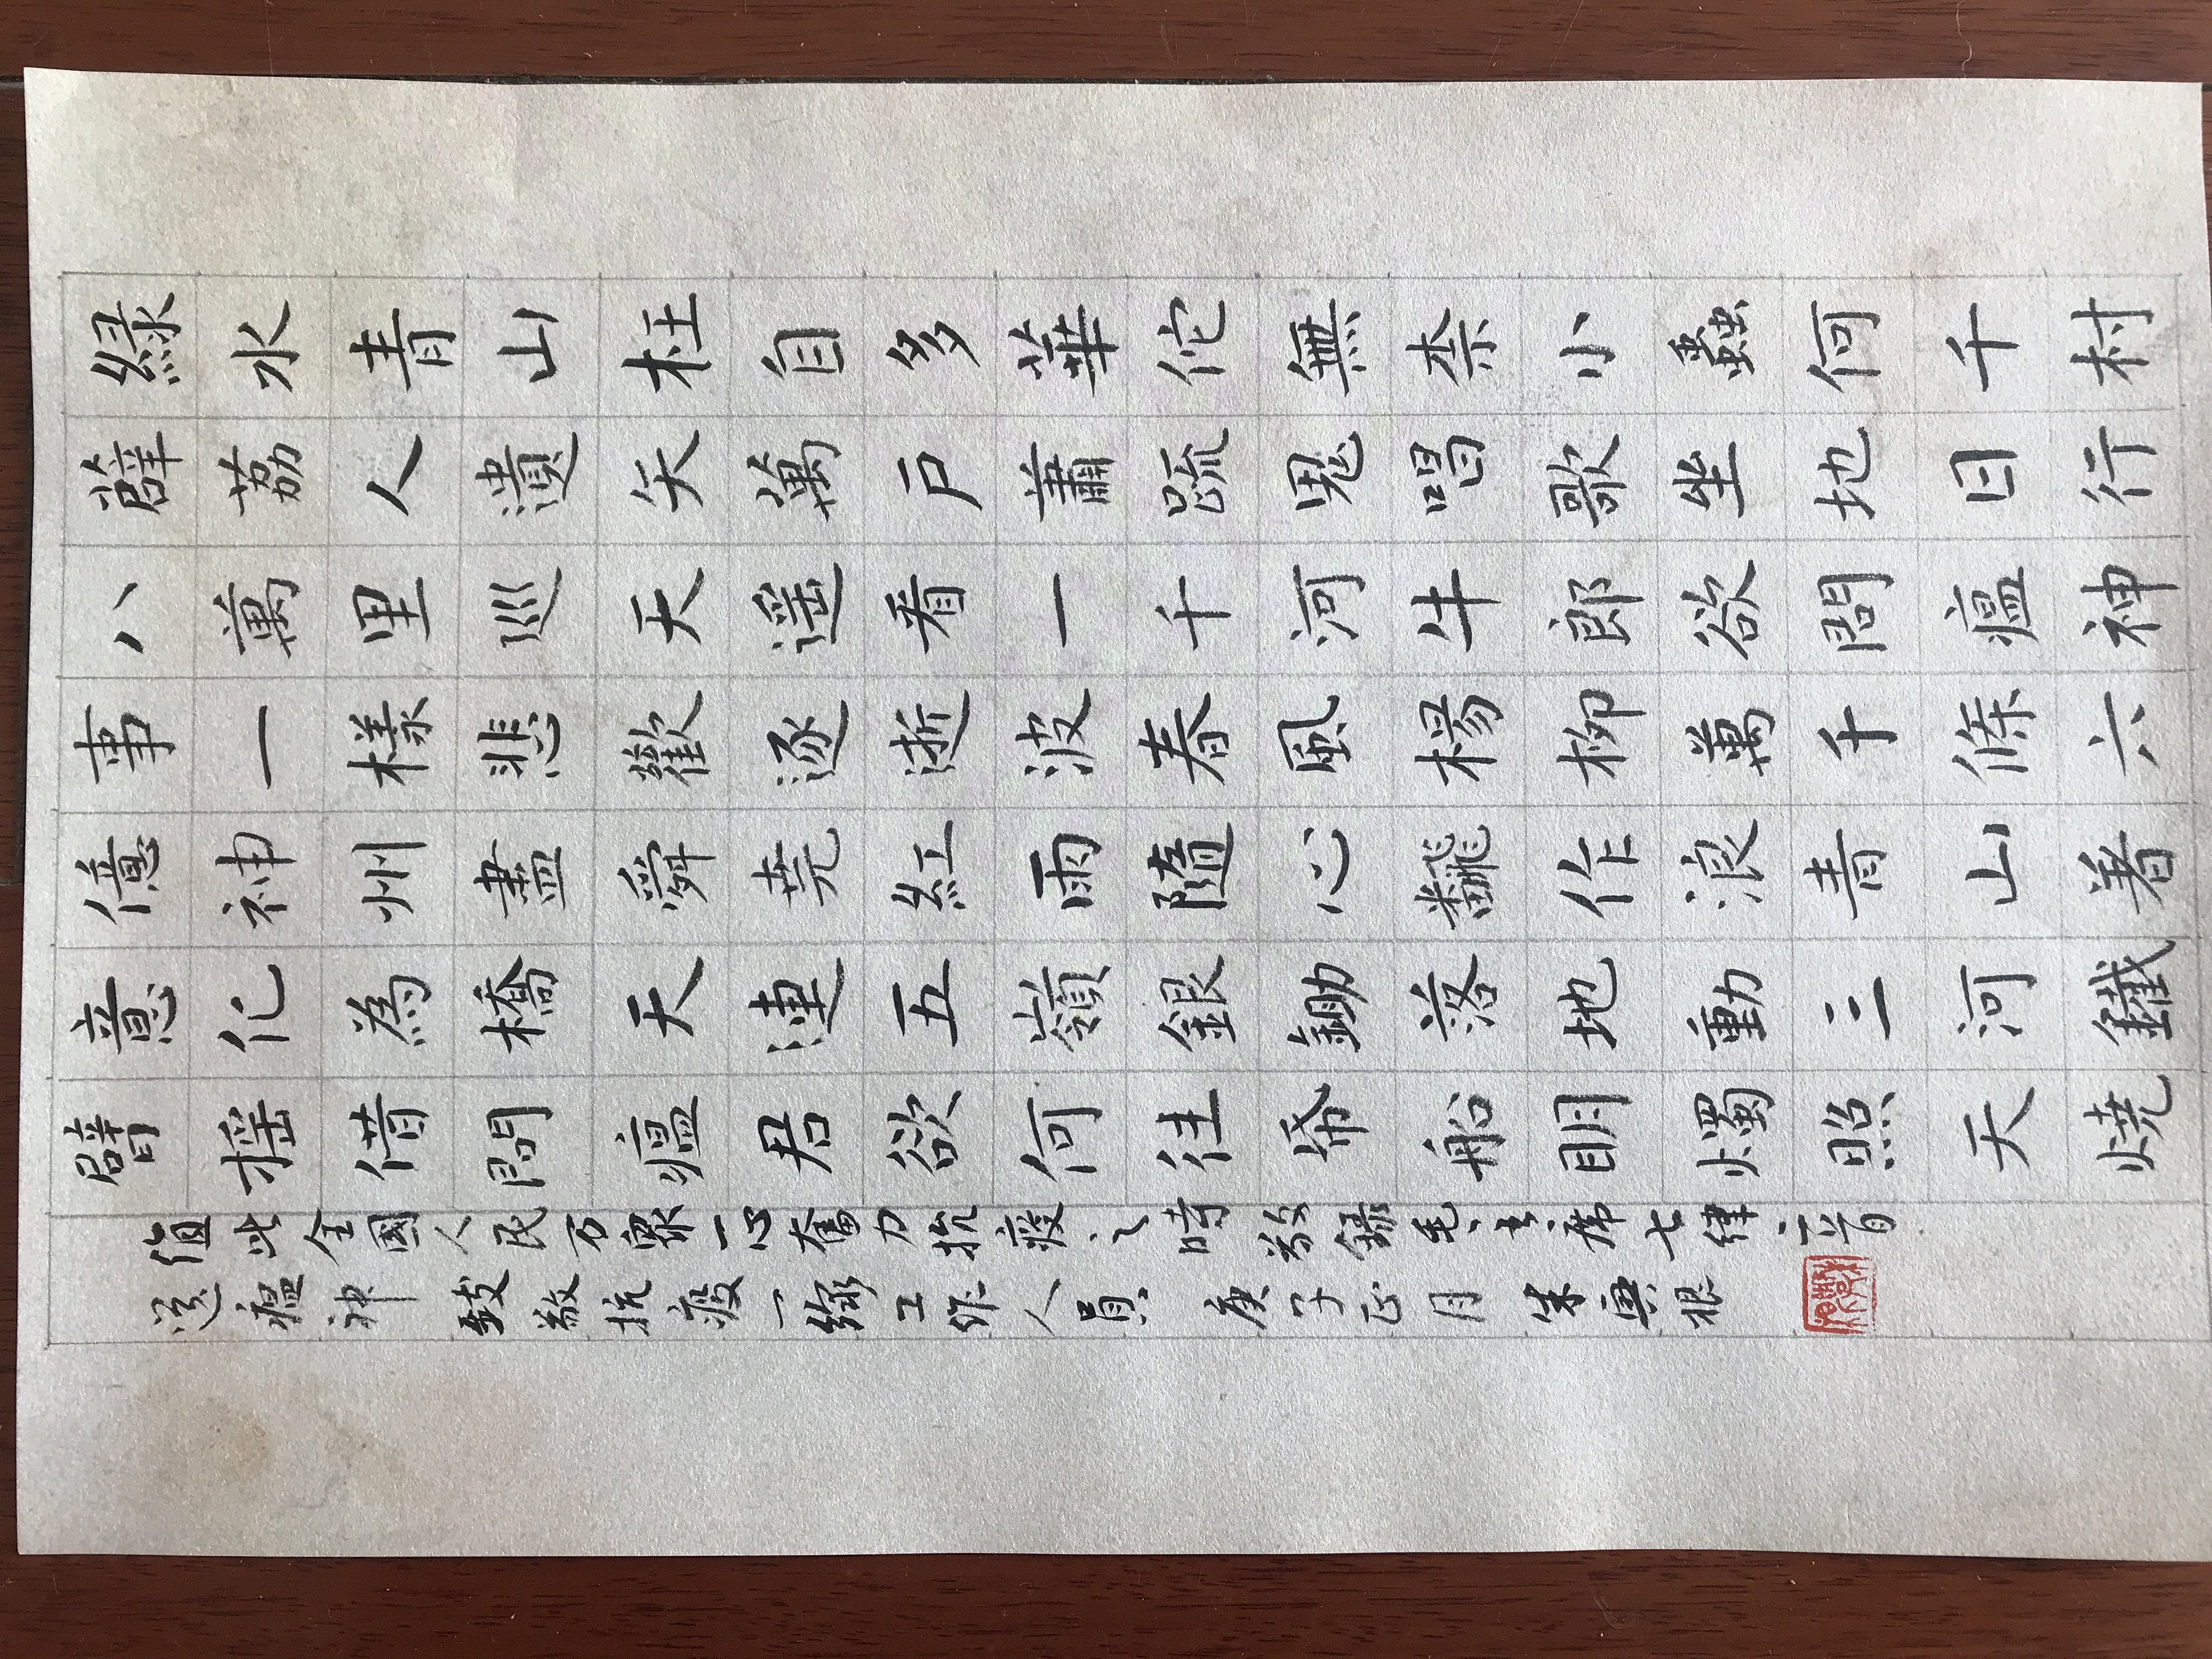 緑水青山枉自多華佗無柰小蟲何千村
薜荔人遺矢萬戶蕭疏鬼唱歌坐地日行
八萬里巡天遥看一千河牛郎欲問瘟神
事一樣悲歡逐逝波春風楊柳萬千條六
億神州盡舜堯紅雨隨心翻作浪青山着
意化為橋天連五嶺銀鋤落地動三河鐵
臂摇借問瘟君欲何往帋船明燭照天燒
值此全國人民万眾一心奮力抗疫之時敬錄毛主席七律二首
送瘟神 致敬抗疫一線工作人員 庚子正月 朱興根